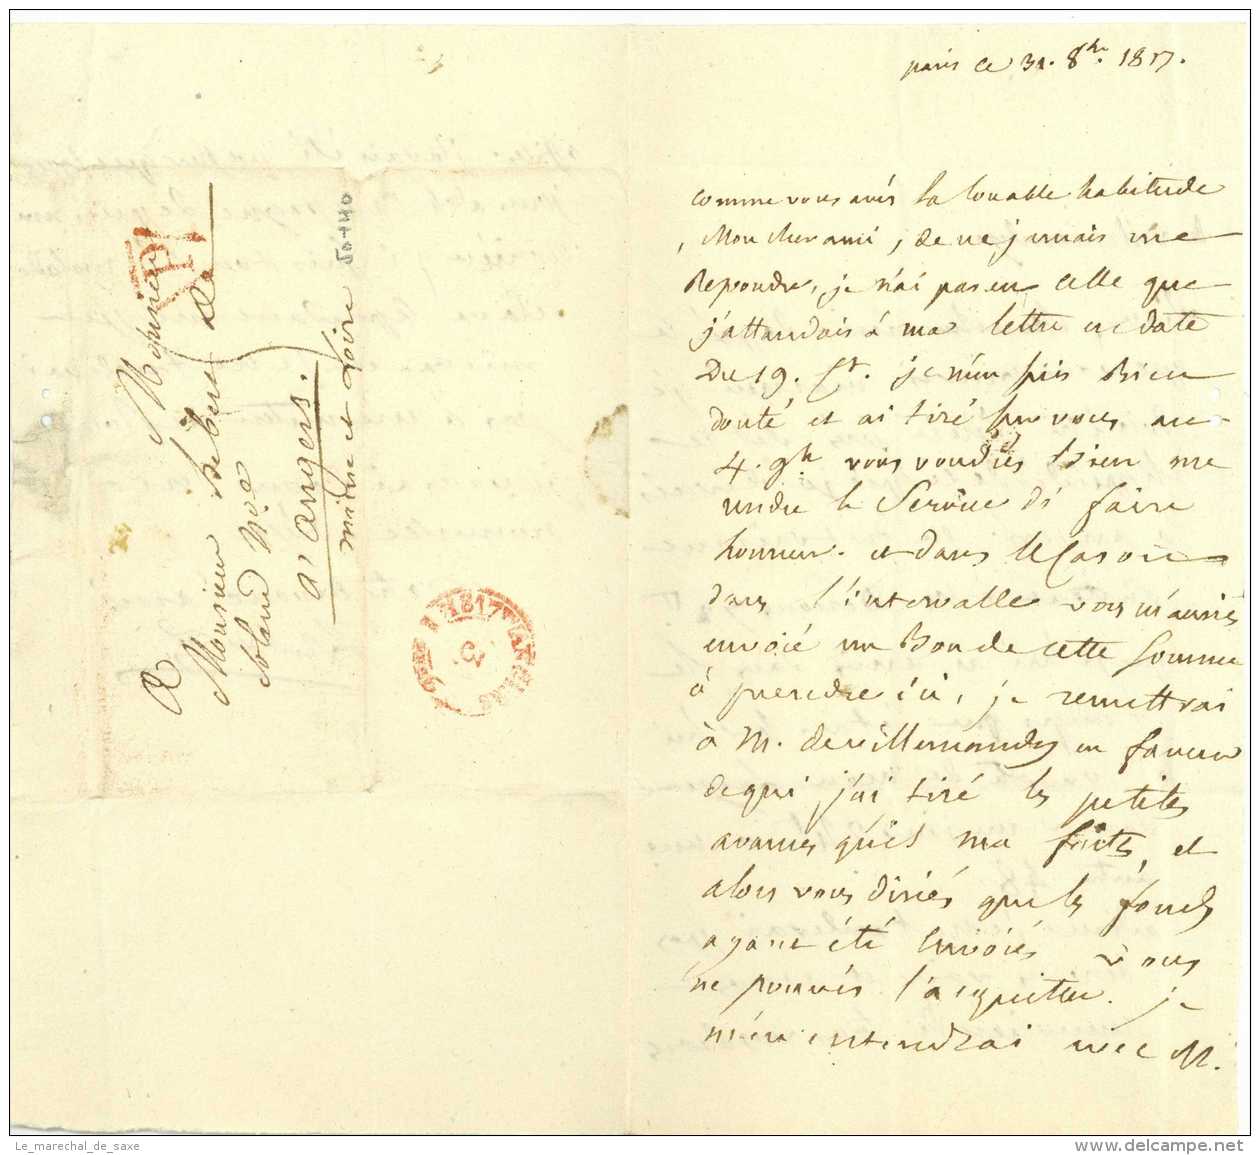 paris ce 31. 8bre. 1817.
comme vous avés la louable habitude
, Mon cher ami, de ne jamais me
Repondre, je n'ai pas eu celle que
j'attandois à ma lettre en date
Du 19. Ct. je m'en suis Bien
douté et ai tiré sur vous au
4. 9bre vous voudrés bien me
rendre le Service d'i faire
honneur. et dans le Cas ou
dans l'intervalle vous m'auriés
envoié un Bon de cette somme
à prendre ici, je remettrai
à M. de villemandy en faveur
de qui j'ai tiré les petites
avances qu'il m'a faites, et
alors vous diriés que les fonds
ayant été Envoiés vous
ne pouvés l'acquitter. je
m'en entendrai avec M.
A
Monsieur
de la
à angers.
maine et Loire
PP
1817
ANGERS
50+40
Le_marechal_de_saxe
delcampe.net